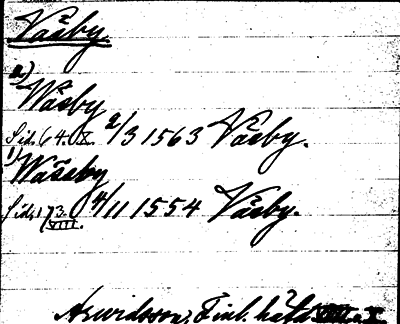 Väsby
2.)
Wäsby
Sid. 64. X. 2/3 1563 Väsby.
1)
Wässby
Sid. 173. VIII. 4/11 1554 Väsby.
Arwidsson, Finl. häfd.